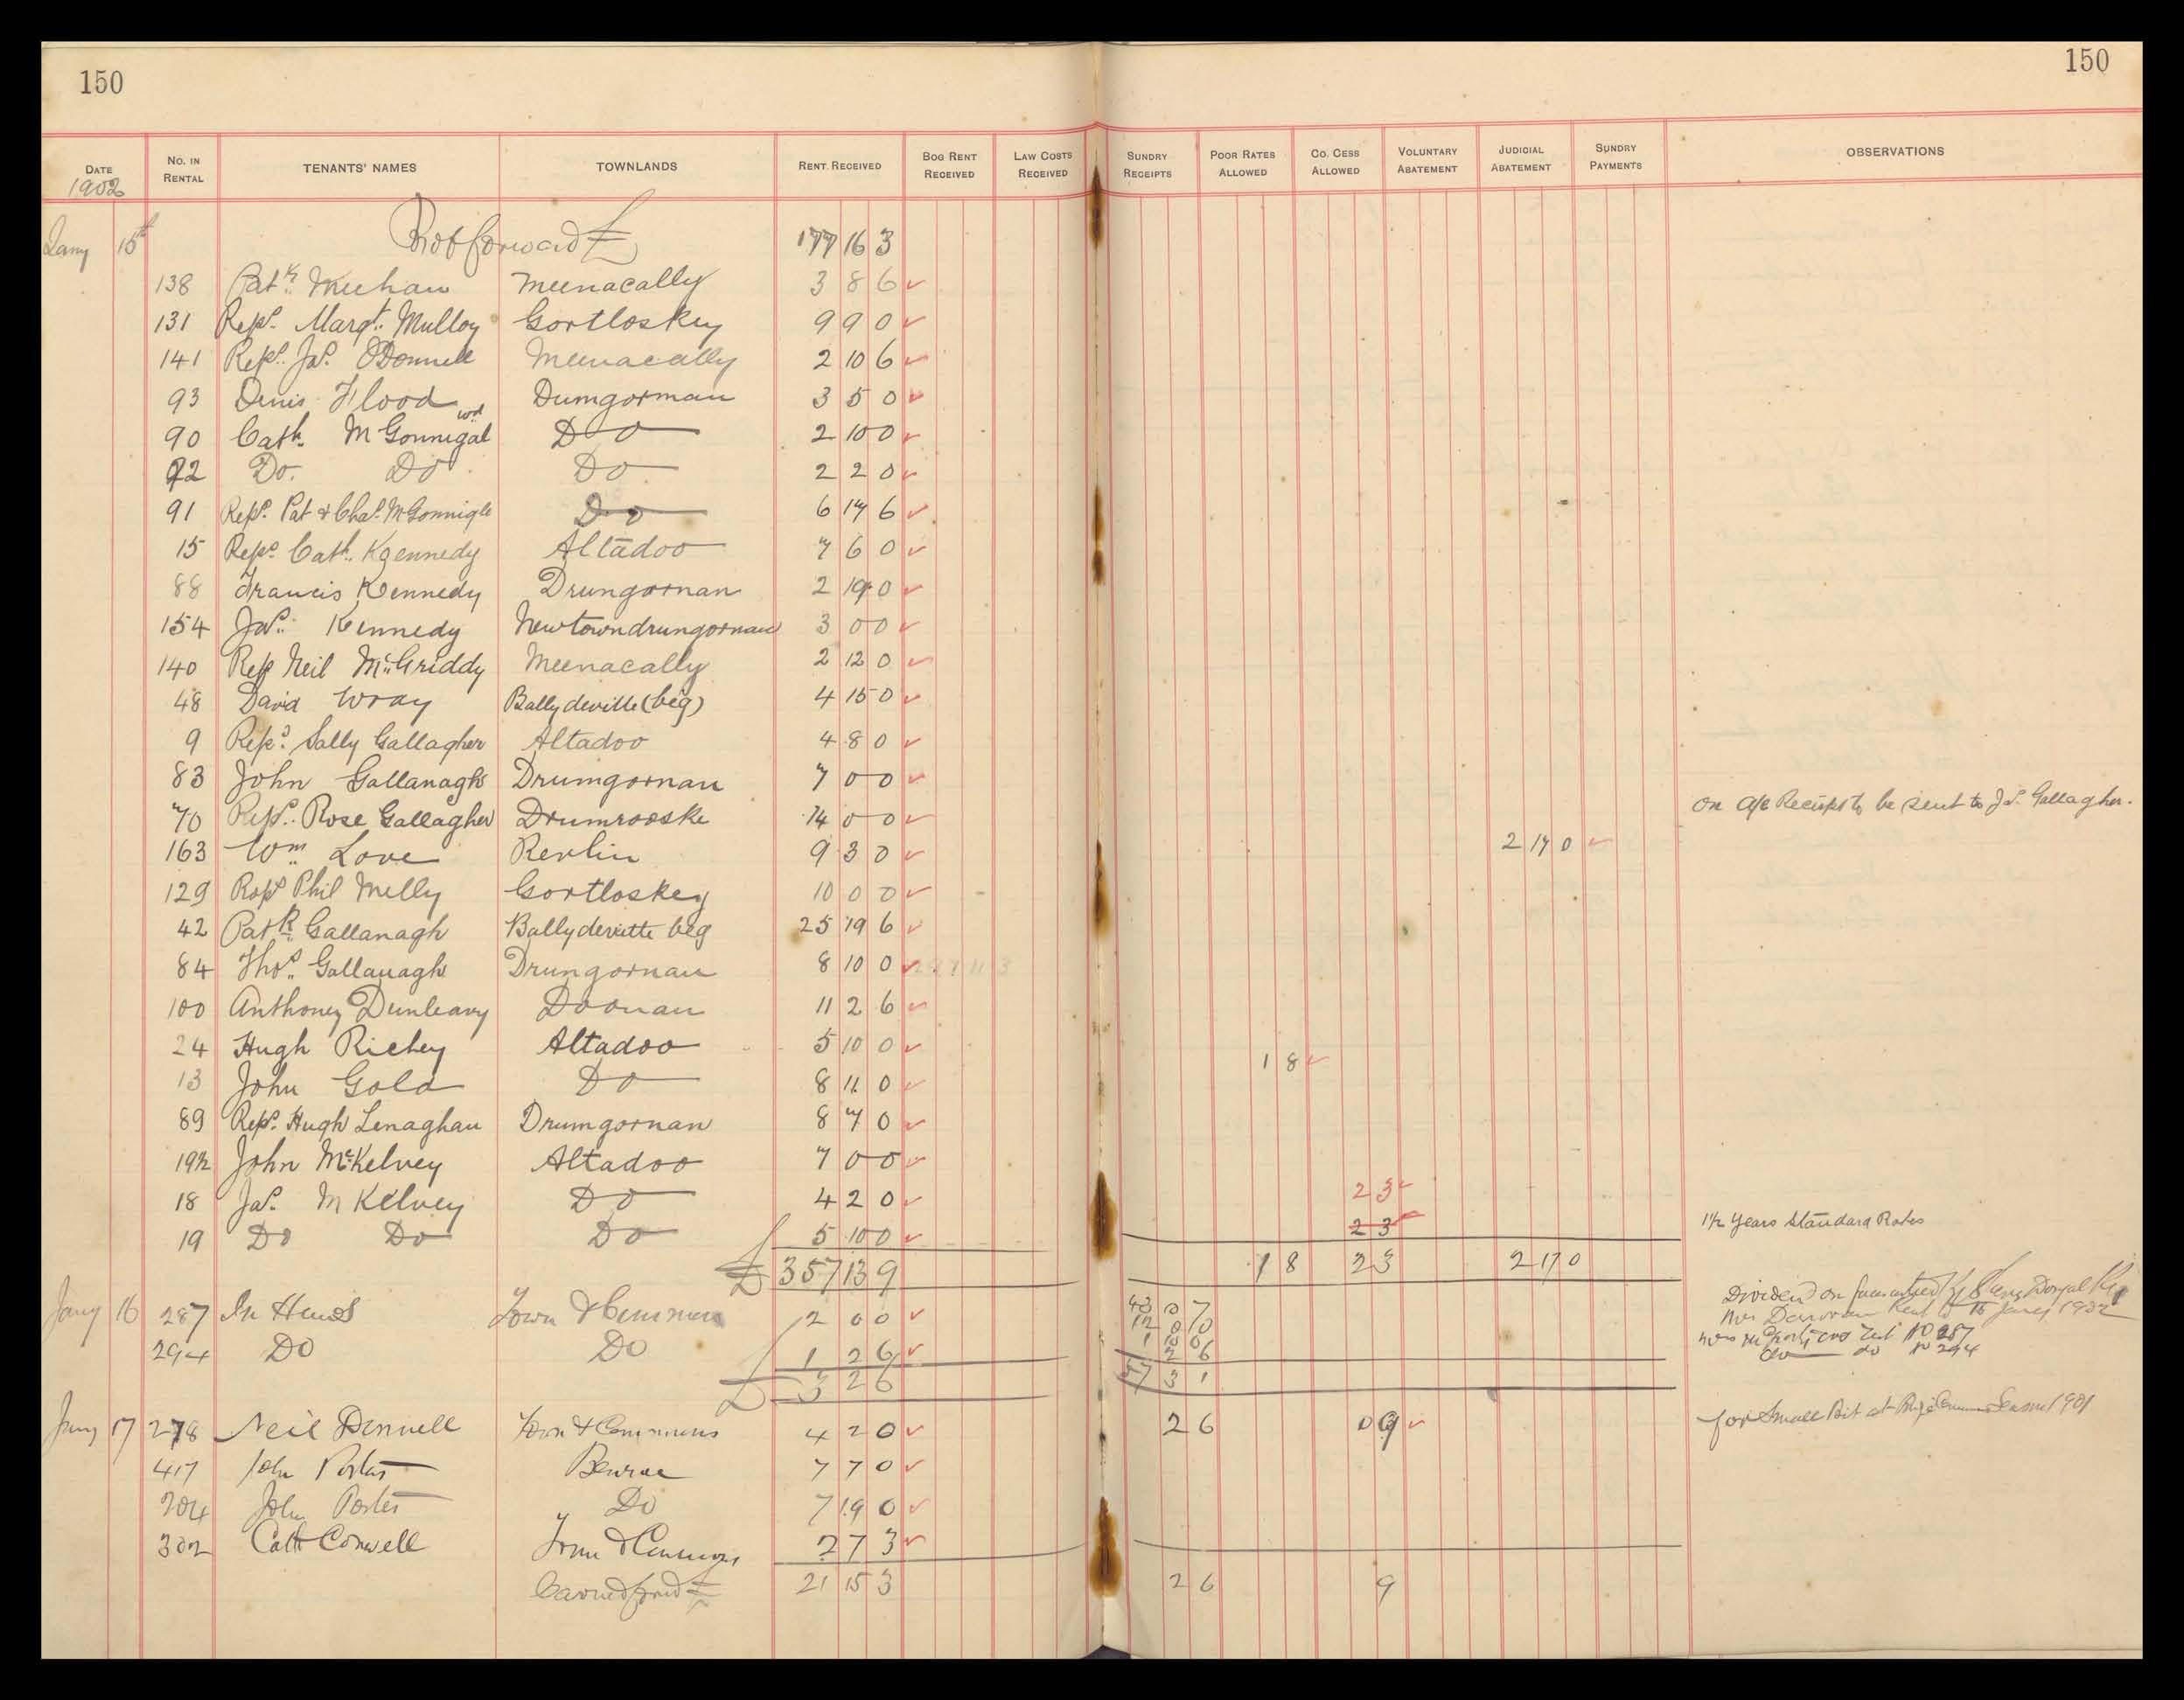 150
150
DATE 1902 NO. IN RENTAL TENANTS' NAMES TOWNLANDS RENT RECEIVED BOG RENT RECEIVED LAW COSTS RECEIVED SUNDRY RECEIPTS POOR RATES ALLOWED CO. CESS ALLOWED VOLUNTARY ABATEMENT JUDICIAL ABATEMENT SUNDRY PAYMENTS OBSERVATIONS
Jany 15th Brot forward £ 177 16 3
138 Patk. Meehan Meenacally 3 8 6 ✓
131 Reps. Margt. Mulloy Gortloskey 9 9 0 ✓
141 Reps. Jas. O'Donnell Meenacally 2 10 6 ✓
93 Denis Flood Dumgorman 3 5 0 ✓
90 Cath. McGonnigal wd Do 2 10 0 ✓
92 Do. Do Do 2 2 0 ✓
91 Reps. Pat & Chas. McGonnigle Do 6 17 6 ✓
15 Reps. Cath. Kennedy Altadoo 7 6 0 ✓
88 Francis Kennedy Drungornan 2 19 0 ✓
154 Jas. Kennedy Newtowndrungornan 3 0 0 ✓
140 Rep Neil McGriddy Meenacally 2 12 0 ✓
48 David Wray Ballydevitte (beg) 4 15 0 ✓
9 Reps. Sally Gallagher Altadoo 4 8 0 ✓
83 John Gallanagh Drumgornan 7 0 0 ✓
70 Reps. Rose Gallagher Drumrooske 14 0 0 ✓ on a/c Receipt to be sent to Jas. Gallagher.
163 Wm Love Revlin 9 3 0 ✓ 2 17 0 ✓
129 Reps Phil Melly Gortloskey 10 0 0 ✓
42 Patk Gallanagh Ballydevitte beg 25 19 6 ✓
84 Thos. Gallanagh Drungornan 8 10 0 ✓
100 Anthoney Dunleavy Doonan 11 2 6 ✓
24 Hugh Richey Altadoo 5 10 0 ✓ 1 8 ✓
13 John Gold Do 8 11 0 ✓
89 Reps. Hugh Lenaghan Drumgornan 8 7 0 ✓
19½ John McKelvey Altadoo 7 0 0 ✓
18 Jas. McKelvey Do 4 2 0 ✓ 2 3 ✓
19 Do Do Do 5 10 0 ✓ 2 3 ✓ 1½ Years Standard Rates
£ 357 13 9 1 8 2 3 2 17 0
Jany 16 287 Town & Commons 2 0 0 ✓ 43 0 7 Dividend on
12 0 0 Mrs Rent to 15 Jany 1902
294 Do Do 1 2 6 ✓ 1 No 287
2 6 do do No 294
£ 3 2 6 57 3 1
Jany 17 278 Neil Town & Commons 4 2 0 ✓ 2 6 0 9 ✓ for Small Bit at 1901
417 John Porter 7 7 0 ✓
204 John Porter Do 7 19 0 ✓
302 Cath Conwell Town & Commons 2 7 3 ✓
Carried forwd £ 21 15 3 2 6 9